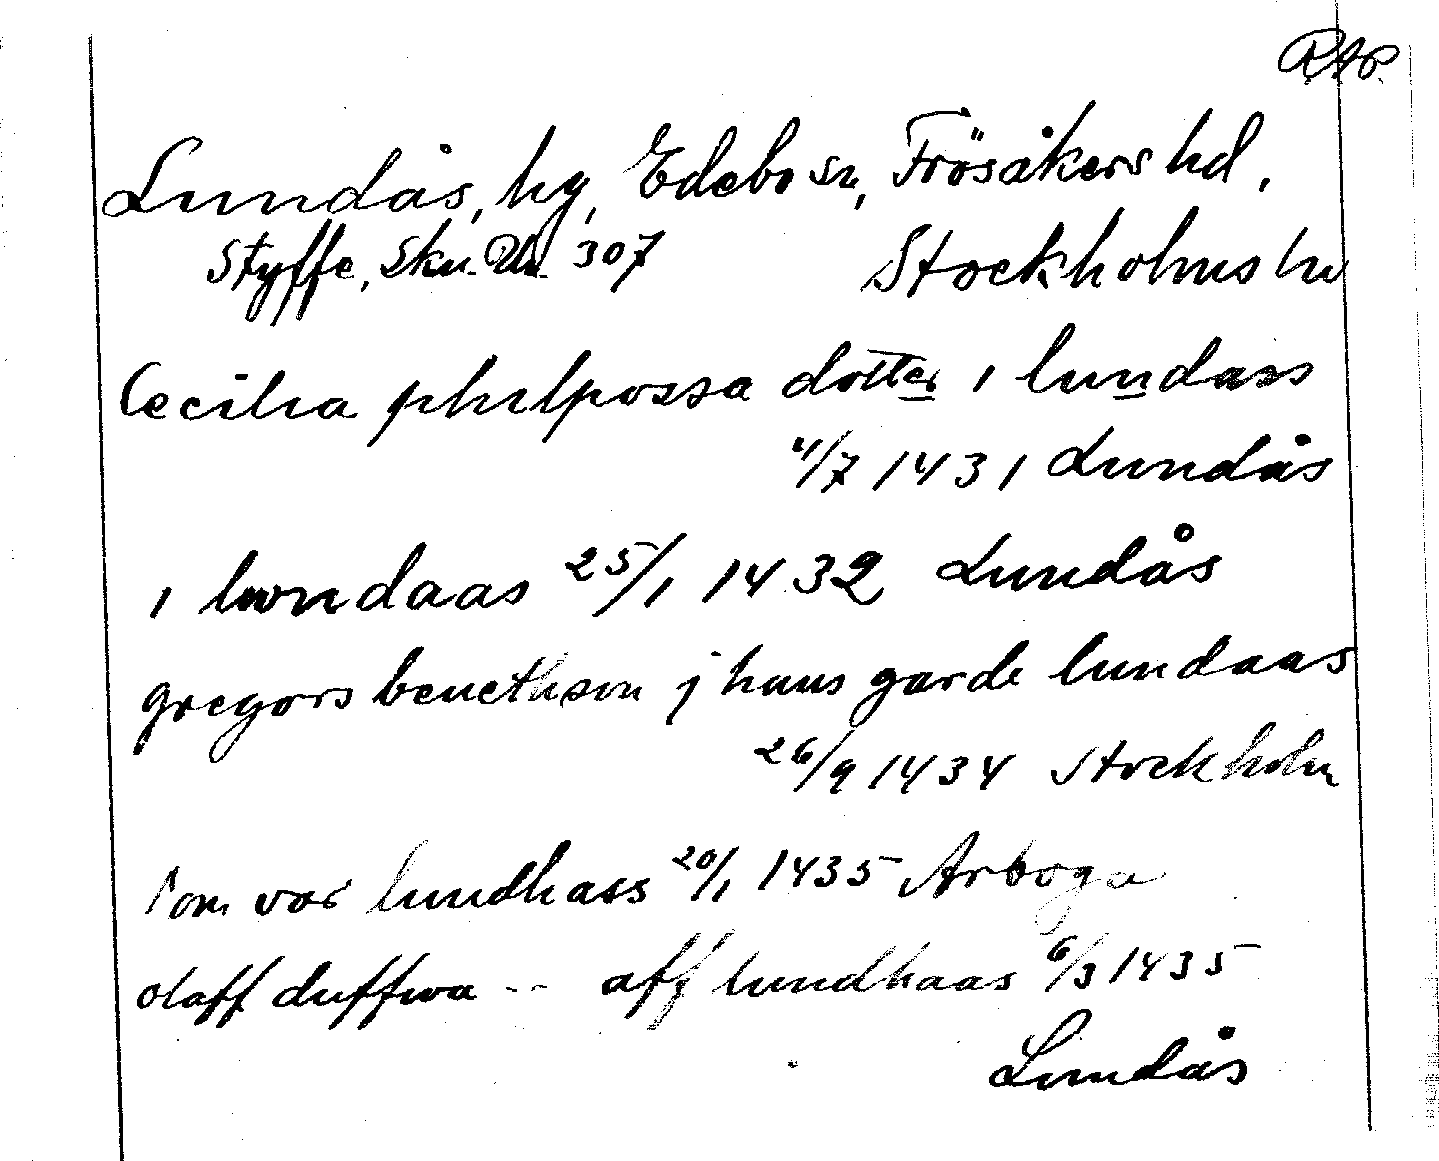 RAP.
Lundås, by, Edebo sn, Frösåkers hd,
Styffe, Sku. Un. 307 Stockholms län
Cecilia philpossa dotter i lundass
4/7 1431 Lundås
i lwndaas 25/1 1432 Lundås
gregors benethson j hans garde lundaas
26/9 1434 Stockholm
som var lundhass 20/1 1435 Arboga
olaff duffwa -- aff lundhaas 6/3 1435
Lundås